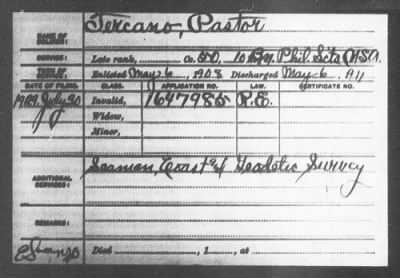 NAME OF SOLDIER: Tercano, Pastor
SERVICE: Late rank, Co. 50, 10 Bn. Phil. Scts. U.S.A.
TERM OF SERVICE: Enlisted May 6, 1908 Discharged May 6, 1911
DATE OF FILING. CLASS. APPLICATION NO. LAW. CERTIFICATE NO.
1929 July 20 Invalid, 1647985 R.E.
Widow,
Minor,
ADDITIONAL SERVICES: Seaman, Coast & Geodetic Survey
REMARKS:
Died , 1 , at